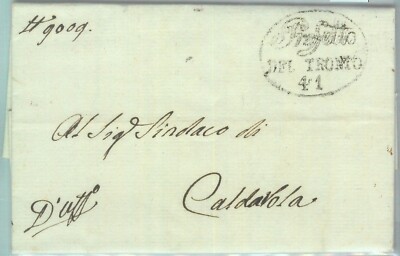 N 9009.
Prefetto
DEL TRONTO
41
Al Sig Sindaco di
D'uff°
Caldarola